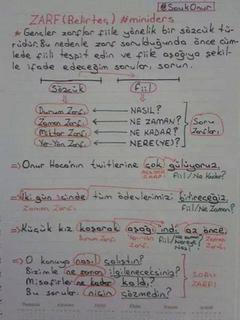 #SoruOnur
ZARF (Belirteç) #miniders
* Gençler zarflar fiile yönelik bir sözcük tü-
rüdür. Bu nedenle zarf sorulduğunda önce cüm-
lede fiili tespit edin ve fiile aşağıya şekil-
le ifade edeceğim soruları sorun.
Sözcük fiil
Durum Zarfı NASIL?
Zaman Zarfı NE ZAMAN?
Miktar Zarfı NE KADAR?
Yer-Yön Zarfı NERE(YE)?
Soru Zarfları
⇒) Onur Hoca'nın twitlerine çok gülüyoruz.
Fiil/Ne Kadar?
⇒) İki gün içinde tüm ödevlerimizi bitireceğiz.
Zaman Zarfı Fiil/Ne Zaman?
⇒) Küçük kız koşarak aşağı indi az önce.
Durum Zarfı Yer-Yön Zarfı Zaman Zarfı
⇒) O konuya nasıl çalıştın?
Bizimle ne zaman ilgileneceksiniz?
Misafirler ne kadar kaldı?
Bu soruları niçin çözmedin?
SORU ZARFI